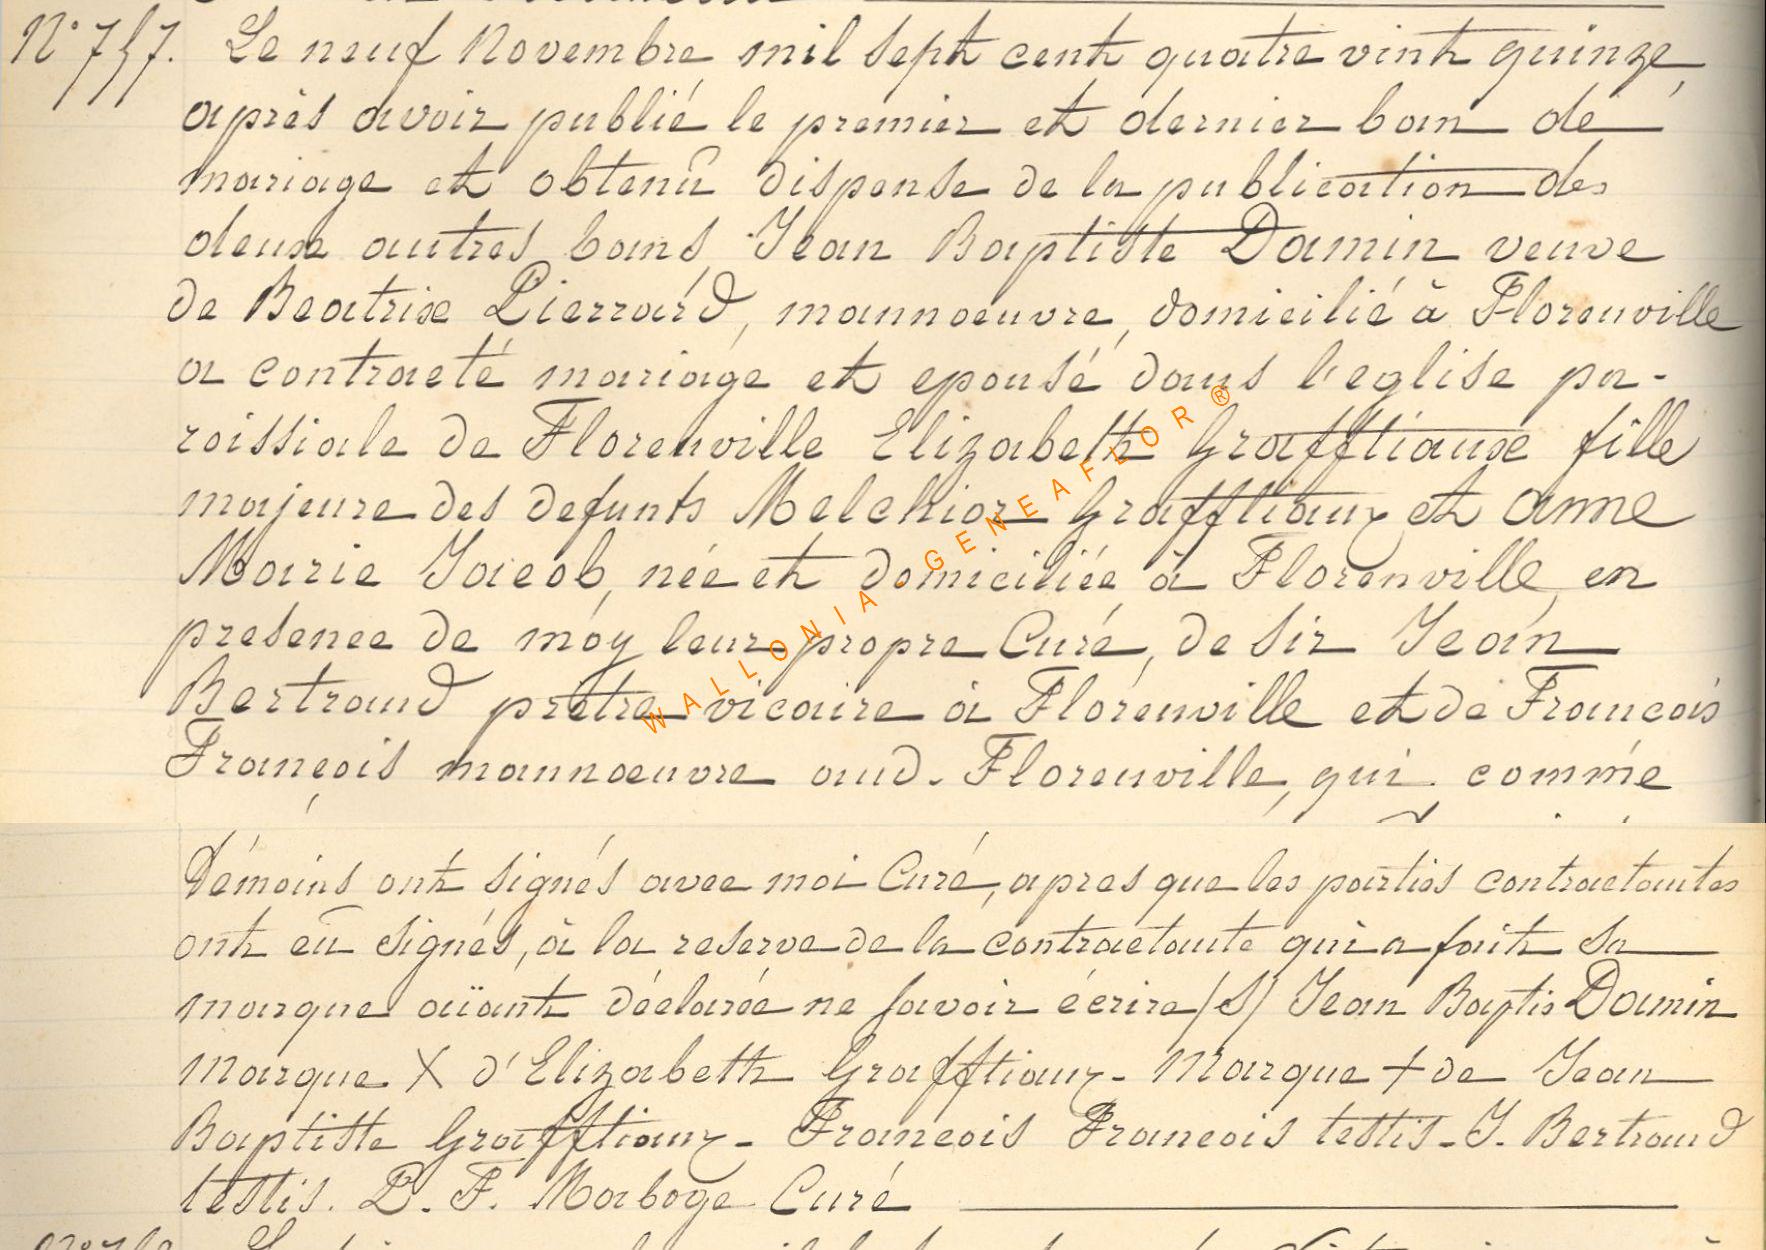 N° 757. Le neuf Novembre mil sept cent quatre vint quinze,
après avoir publié le premier et dernier ban de
mariage et obtenû dispense de la publication des
deux autres bans Jean Baptiste Damin veuve
de Beatrix Pierrard, mannoeuvre, domicilié à Florenville
a contracté mariage et epousé dans l'eglise pa-
roissiale de Florenville Elizabeth Grafftiaux fille
majeure des defunts Melchior Grafftiaux et anne
Marie Jacob, née et domiciliée à Florenville, en
presence de moy leur propre Curé, de sir Jean
Bertrand prêtre vicaire à Florenville et de Francois
François mannoeuvre aud. Florenville, qui comme
témoins ont signés avec moi Curé, apres que les parties contractantes
ont eû signés, à la reserve de la contractante qui a fait sa
marque aïant déclarée ne savoir écrire /S/ Jean Baptis Damin
Marque X d'Elizabeth Grafftiaux - Marque + de Jean
Baptiste Grafftiaux - Francois Francois testis - J. Bertrand
testis. P. F. Maboge Curé
WALLONIA - GENEAFLOR ®